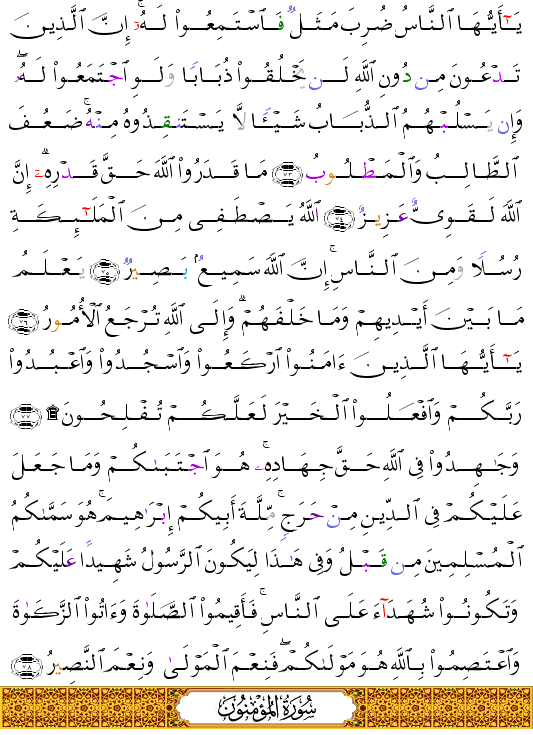 يَـٰٓأَيُّهَا ٱلنَّاسُ ضُرِبَ مَثَلٌ فَٱسْتَمِعُوا۟ لَهُۥٓ ۚ إِنَّ ٱلَّذِينَ
تَدْعُونَ مِن دُونِ ٱللَّهِ لَن يَخْلُقُوا۟ ذُبَابًا وَلَوِ ٱجْتَمَعُوا۟ لَهُۥ ۖ
وَإِن يَسْلُبْهُمُ ٱلذُّبَابُ شَيْـًٔا لَّا يَسْتَنقِذُوهُ مِنْهُ ۚ ضَعُفَ
ٱلطَّالِبُ وَٱلْمَطْلُوبُ ﴿٧٣﴾ مَا قَدَرُوا۟ ٱللَّهَ حَقَّ قَدْرِهِۦٓ ۗ إِنَّ
ٱللَّهَ لَقَوِىٌّ عَزِيزٌ ﴿٧٤﴾ ٱللَّهُ يَصْطَفِى مِنَ ٱلْمَلَـٰٓئِكَةِ
رُسُلًا وَمِنَ ٱلنَّاسِ ۚ إِنَّ ٱللَّهَ سَمِيعٌۢ بَصِيرٌ ﴿٧٥﴾ يَعْلَمُ
مَا بَيْنَ أَيْدِيهِمْ وَمَا خَلْفَهُمْ ۗ وَإِلَى ٱللَّهِ تُرْجَعُ ٱلْأُمُورُ ﴿٧٦﴾
يَـٰٓأَيُّهَا ٱلَّذِينَ ءَامَنُوا۟ ٱرْكَعُوا۟ وَٱسْجُدُوا۟ وَٱعْبُدُوا۟
رَبَّكُمْ وَٱفْعَلُوا۟ ٱلْخَيْرَ لَعَلَّكُمْ تُفْلِحُونَ ۩ ﴿٧٧﴾
وَجَـٰهِدُوا۟ فِى ٱللَّهِ حَقَّ جِهَادِهِۦ ۚ هُوَ ٱجْتَبَىٰكُمْ وَمَا جَعَلَ
عَلَيْكُمْ فِى ٱلدِّينِ مِنْ حَرَجٍ ۚ مِّلَّةَ أَبِيكُمْ إِبْرَٰهِيمَ ۚ هُوَ سَمَّىٰكُمُ
ٱلْمُسْلِمِينَ مِن قَبْلُ وَفِى هَـٰذَا لِيَكُونَ ٱلرَّسُولُ شَهِيدًا عَلَيْكُمْ
وَتَكُونُوا۟ شُهَدَآءَ عَلَى ٱلنَّاسِ ۚ فَأَقِيمُوا۟ ٱلصَّلَوٰةَ وَءَاتُوا۟ ٱلزَّكَوٰةَ
وَٱعْتَصِمُوا۟ بِٱللَّهِ هُوَ مَوْلَىٰكُمْ ۖ فَنِعْمَ ٱلْمَوْلَىٰ وَنِعْمَ ٱلنَّصِيرُ ﴿٧٨﴾
سُورَةُ الْمُؤْمِنُونَ